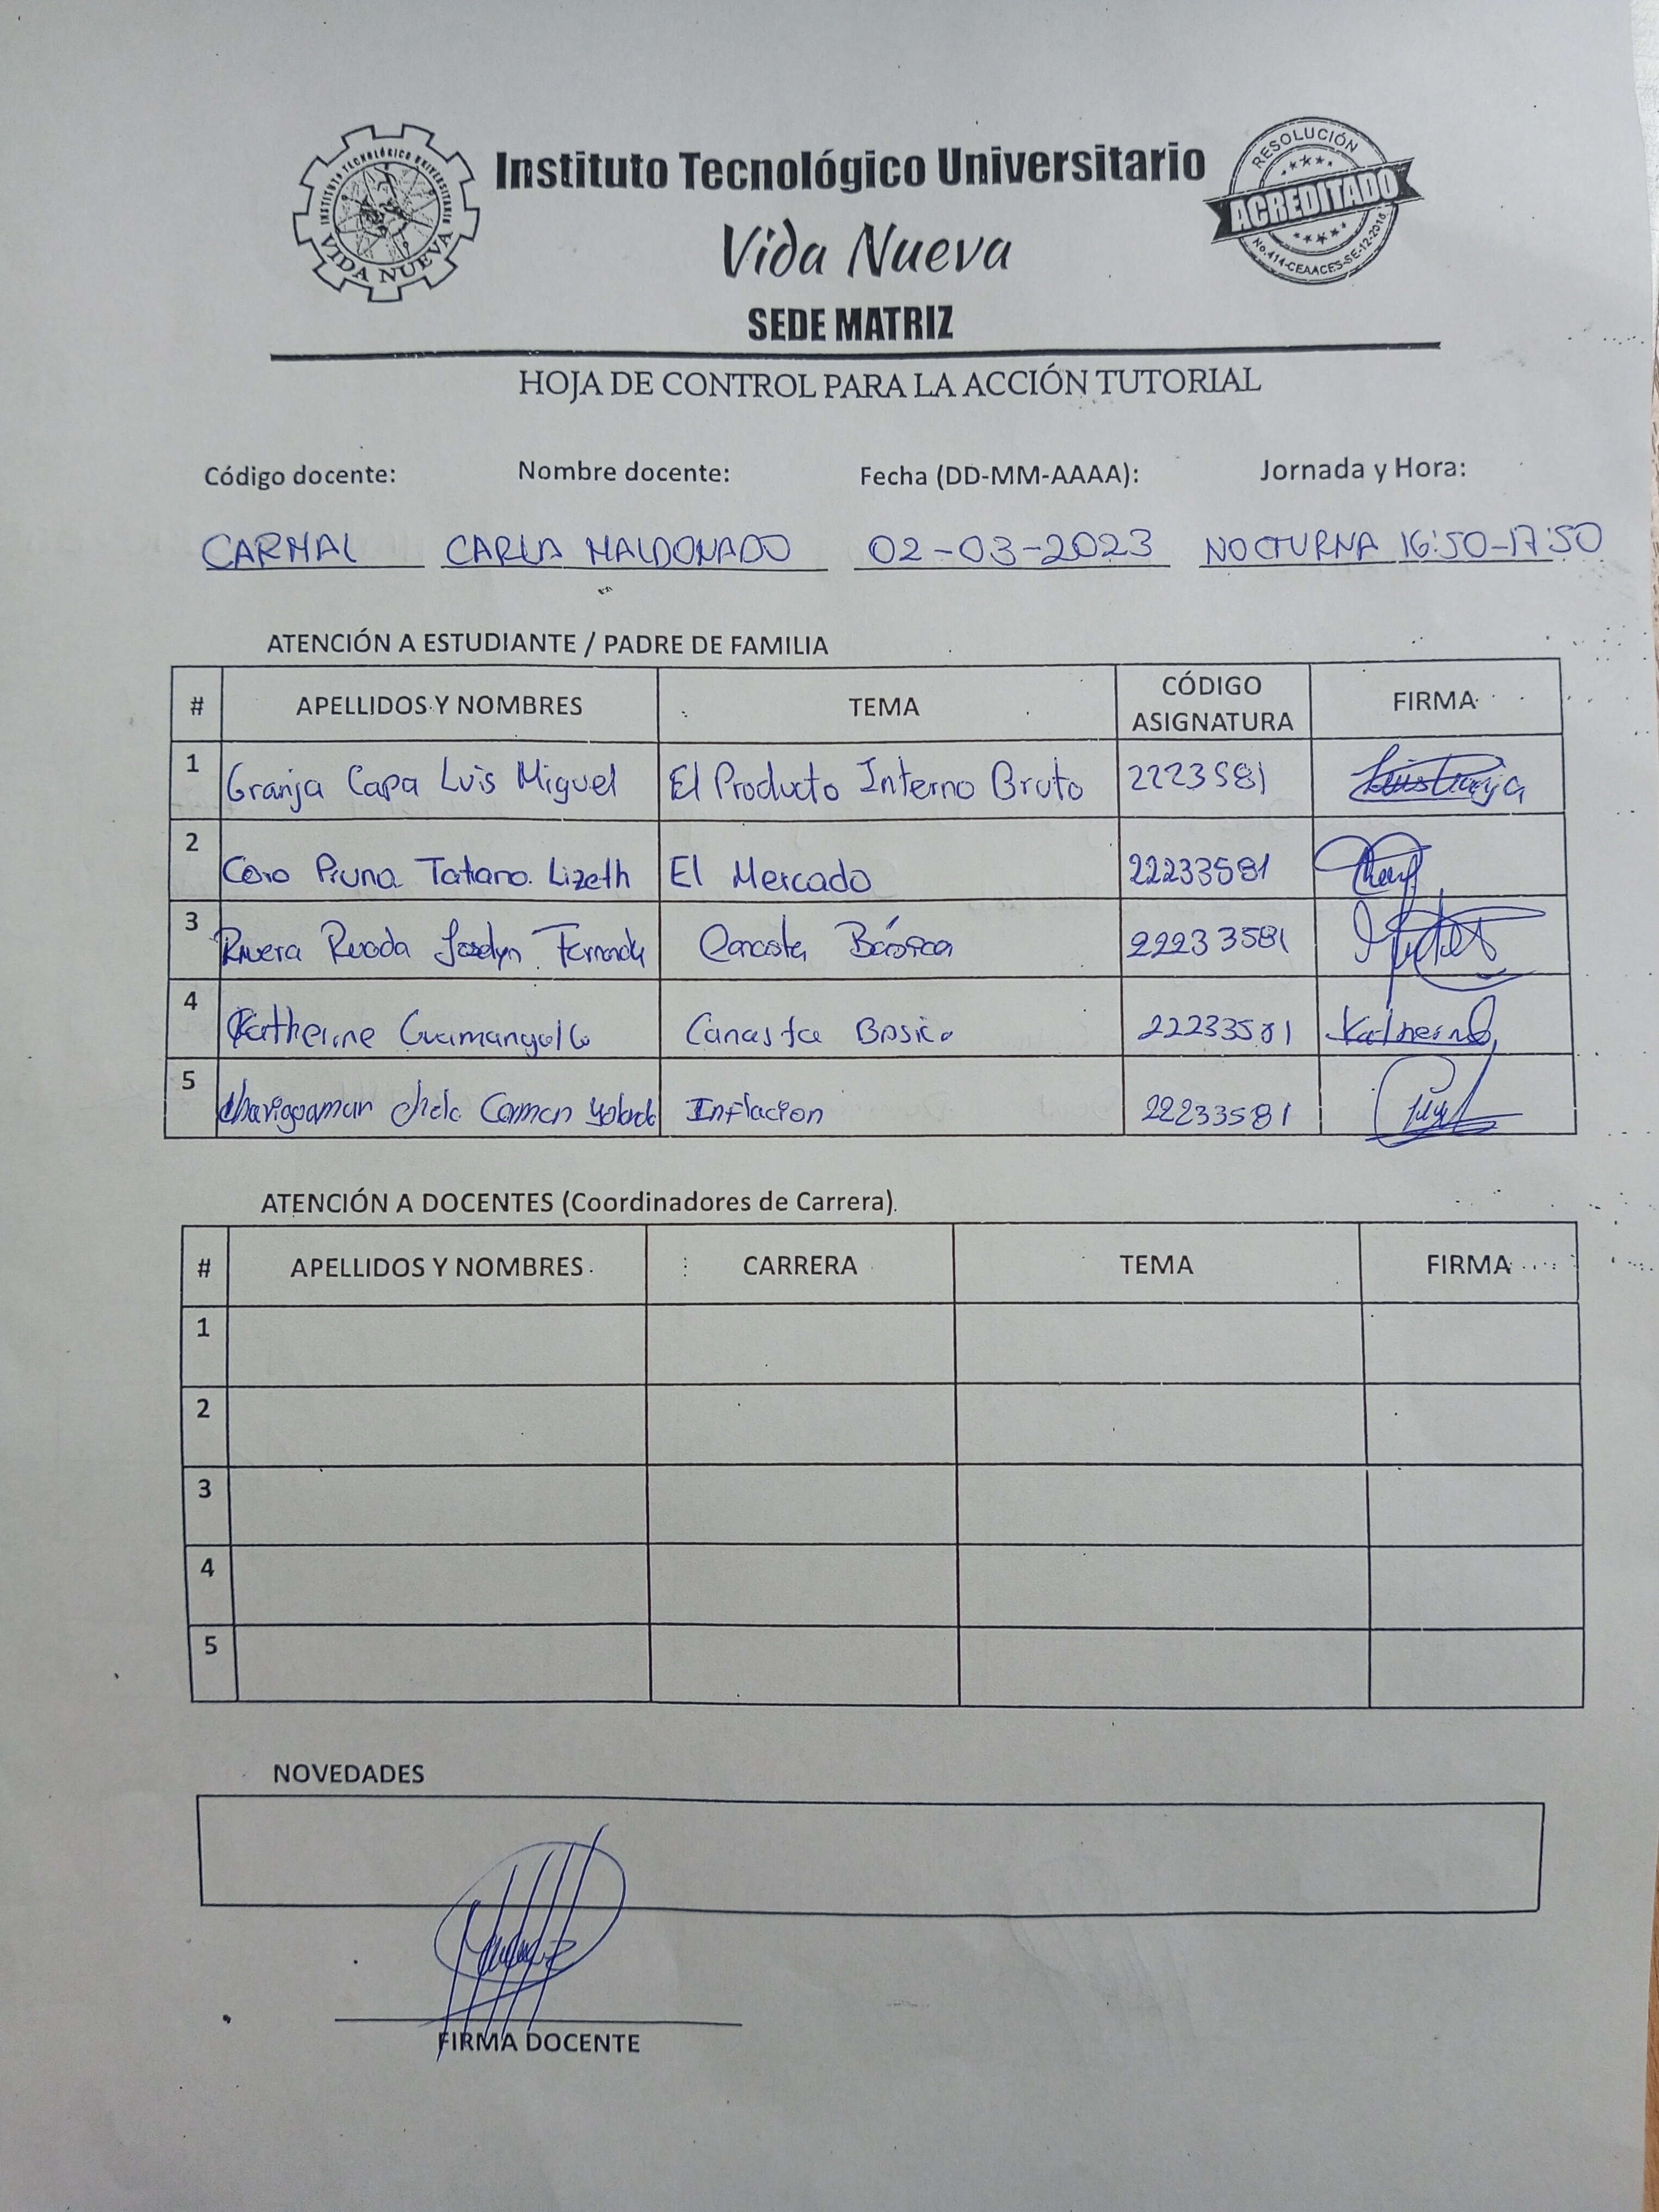 INSTITUTO TECNOLÓGICO UNIVERSITARIO
VIDA NUEVA
Instituto Tecnológico Universitario
Vida Nueva
SEDE MATRIZ
RESOLUCIÓN
ACREDITADO
No.414-CEAACES-SE-12-2016
HOJA DE CONTROL PARA LA ACCIÓN TUTORIAL
Código docente: Nombre docente: Fecha (DD-MM-AAAA): Jornada y Hora:
CARMAL CARLA MALDONADO 02-03-2023 NOCTURNA 16:50-17:50
ATENCIÓN A ESTUDIANTE / PADRE DE FAMILIA
# APELLIDOS Y NOMBRES TEMA CÓDIGO ASIGNATURA FIRMA
1 Granja Capa Luis Miguel El Producto Interno Bruto 2223581
2 Coro Pruna Tatiana Lizeth El Mercado 22233581
3 Rivera Rueda Joselyn Fernanda Canasta Básica 22233581
4 Katherine Canasta Basica 22233581 Katherine
5 Carmen Inflacion 22233581
ATENCIÓN A DOCENTES (Coordinadores de Carrera).
# APELLIDOS Y NOMBRES CARRERA TEMA FIRMA
1
2
3
4
5
NOVEDADES
FIRMA DOCENTE